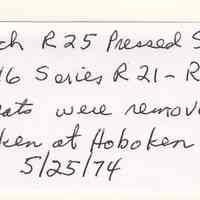 ch R25 Pressed S
16 Series R21-R
ats were remov
ken at Hoboken
5/25/74